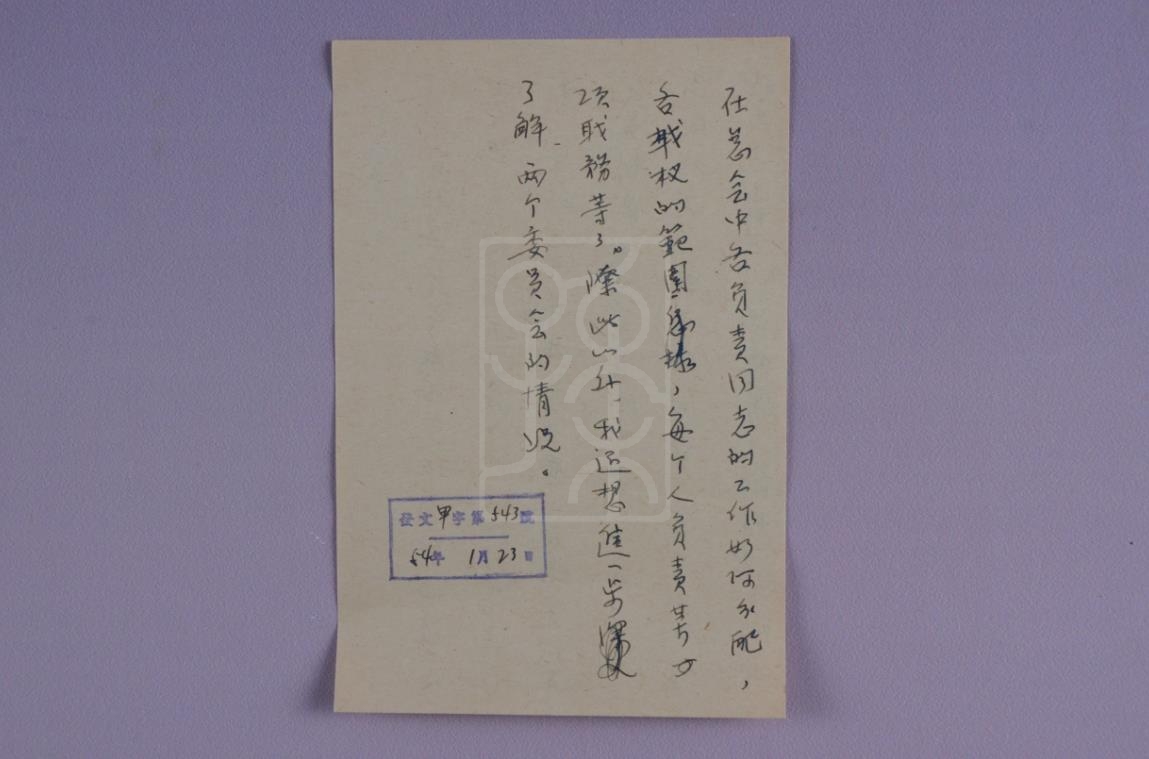 在总会中各负责同志的工作如何分配，
各职权的範圍，每个人负责某方
项职务等々。除此以外，我还想进一步
了解两个委员会的情况。
发文甲字第543号
54年1月23日